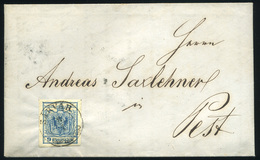 Herrn
Andreas Saxlehner
in
Pest